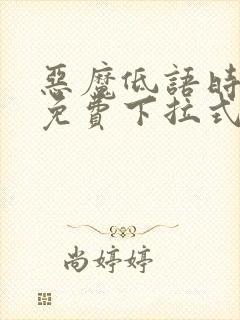 惡魔低語時
免費下拉式
尚婷婷